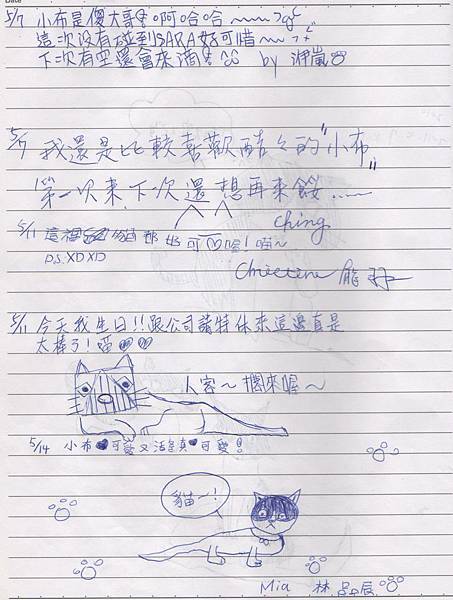 5/7 小布是傻大哥。啊哈哈~~~
這次沒有碰到SARA好可惜~~
下次有空還會來滴! by 湘嵐
5/7 我還是比較喜歡酷々的"小布"
(1st) 第一次來,下次還想再來餒.....
Ching
5/11 這裡 貓都好可 哈!喵~
P.S. XDXD
Christine
5/11 今天我生日!!跟公司請特休來這邊真是
太棒了!喵♥♡♡
人客~擱來喔~
5/14 小布♥可愛又活潑♥可愛!
貓一!
Mia 林